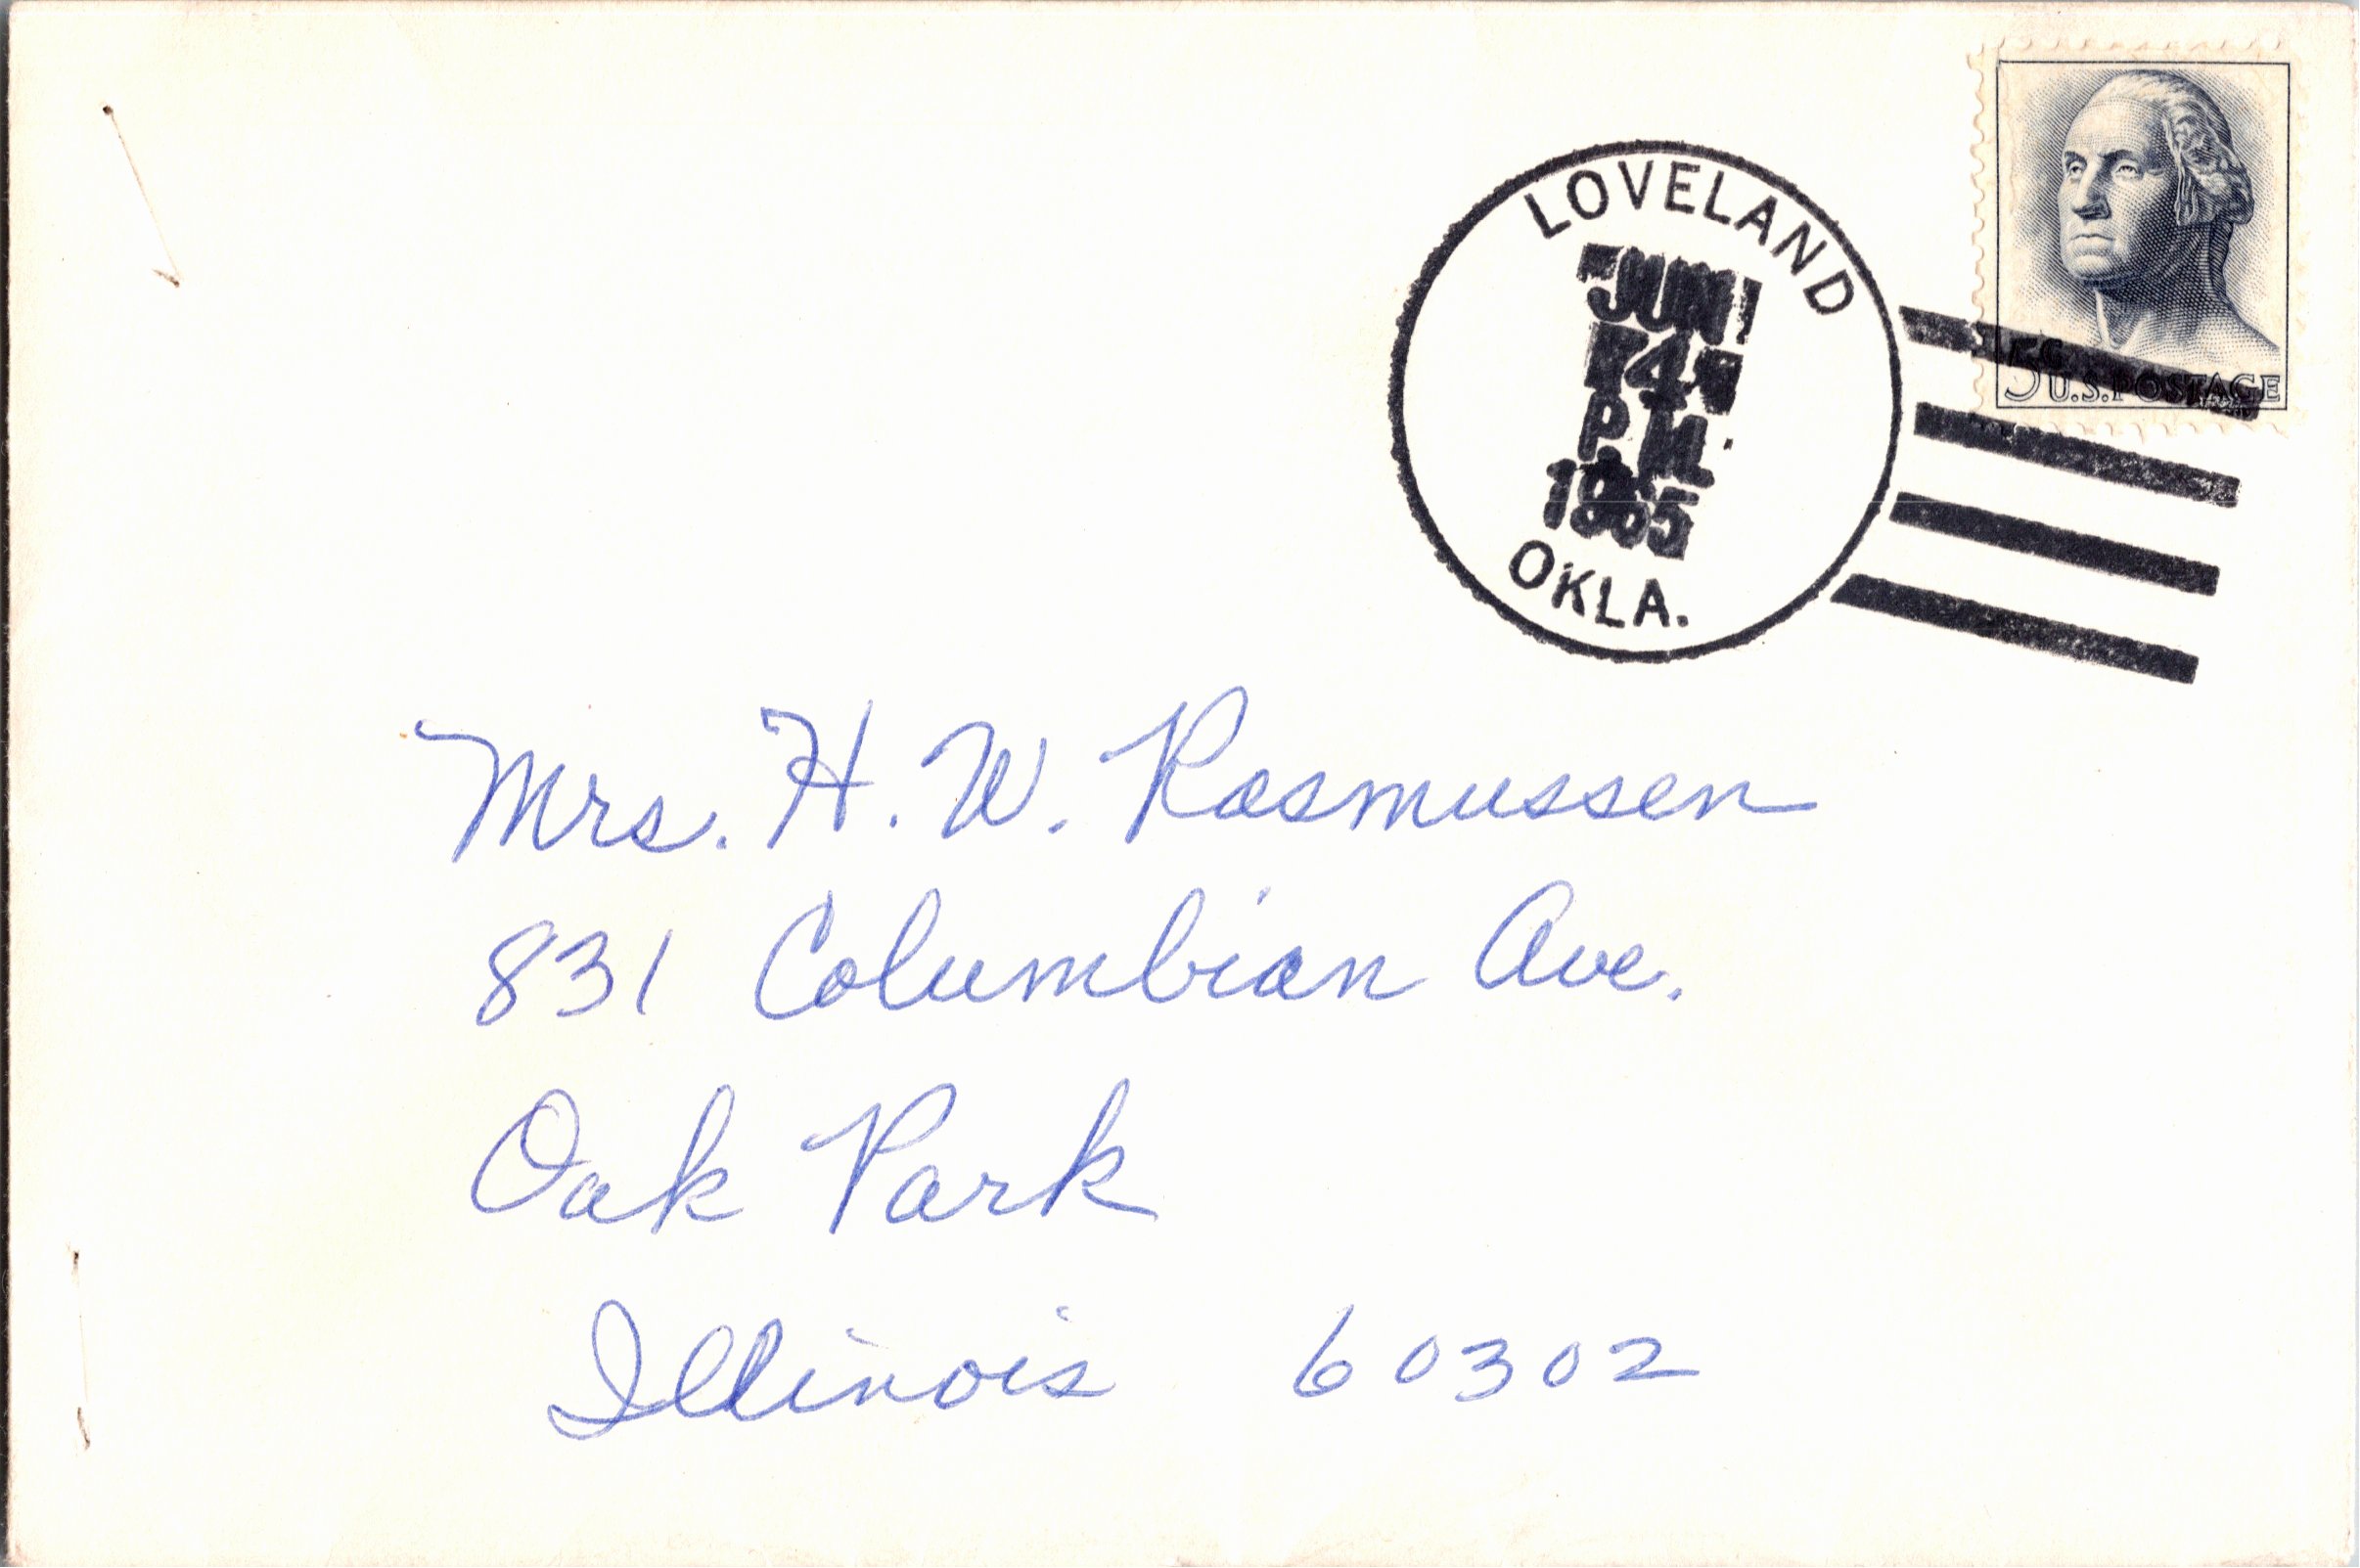 LOVELAND
JUN
4
P.M.
1965
OKLA.
5c U.S. POSTAGE
Mrs. H. W. Rasmussen
831 Columbian Ave.
Oak Park
Illinois 60302